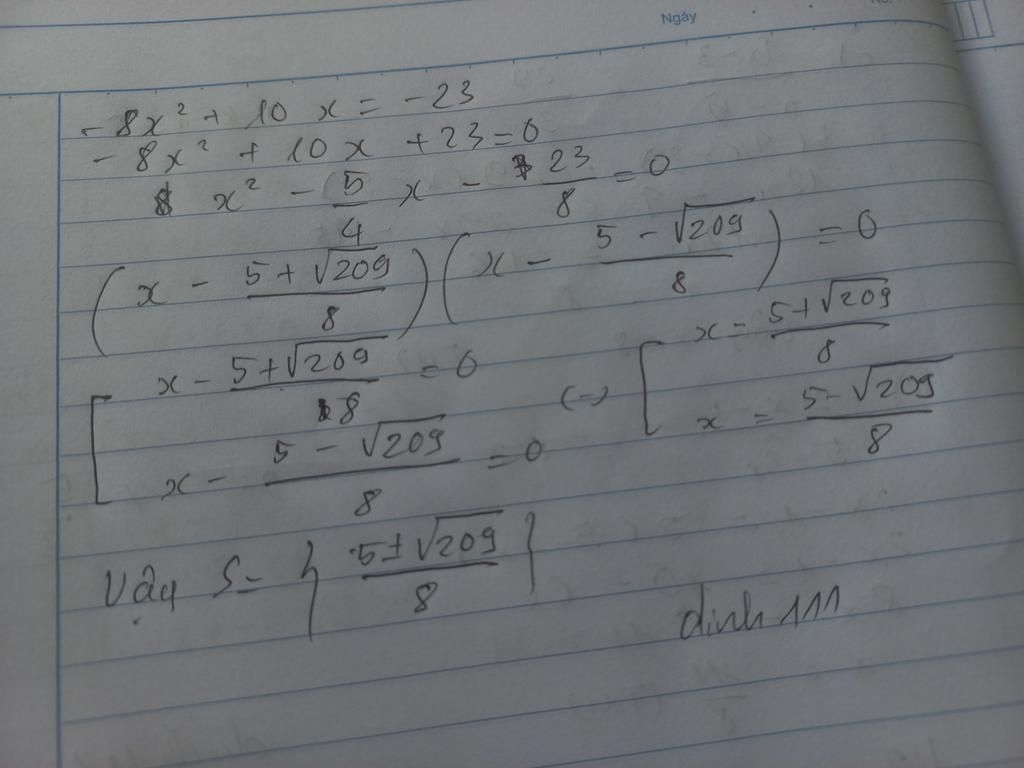 Ngày
No.
- 8x² + 10 x = -23
- 8x² + 10 x + 23 = 0
x² - 5/4 x - 23/8 = 0
(x - (5 + √209)/8) (x - (5 - √209)/8) = 0
[ x - (5 + √209)/8 = 0 (=) [ x = (5 + √209)/8
x - (5 - √209)/8 = 0 x = (5 - √209)/8
Vậy S = { (5 ± √209)/8 }
dinh 111